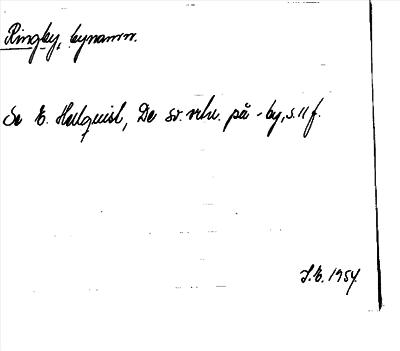 Ringby, bynamn.
Se E. Hellquist, De sv. ortn. på -by, s. 11 f.
S.E. 1954